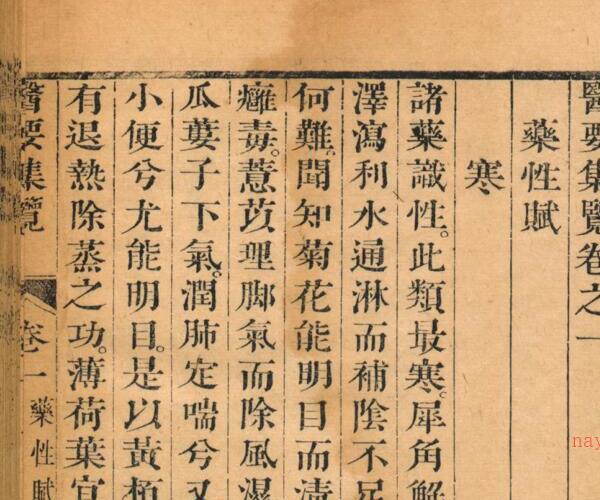 醫要集覽卷之一
藥性賦
寒
諸藥識性。此類最寒。犀角解
澤瀉利水通淋而補陰不足
何難。聞知菊花能明目而清
癰毒。薏苡理脚氣而除風濕
瓜蔞子下氣。潤肺定喘兮又
小便兮尤能明目。是以黃栢
有退熱除蒸之功。薄荷葉宜
醫要集覽
卷一
藥性賦
nay